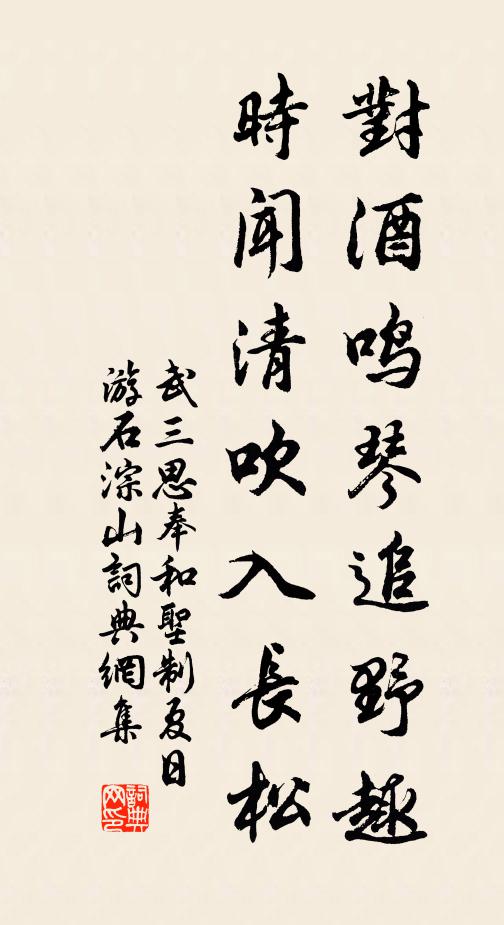 對酒鸣琴追野趣
時闻清吹入長松
武三思奉和聖制夏日
游石淙山詞典網集
詞典
网印